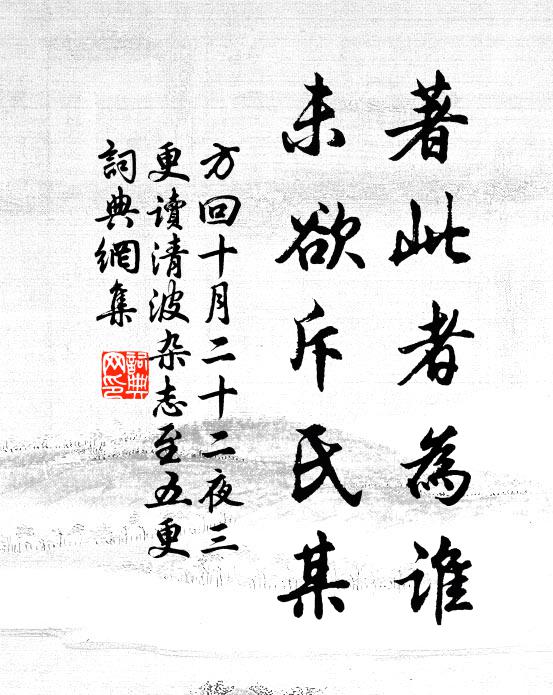 著此者為誰
未欲斥氏某
方回十月二十二夜三
更讀清波杂志至五更
詞典網集
詞典网印